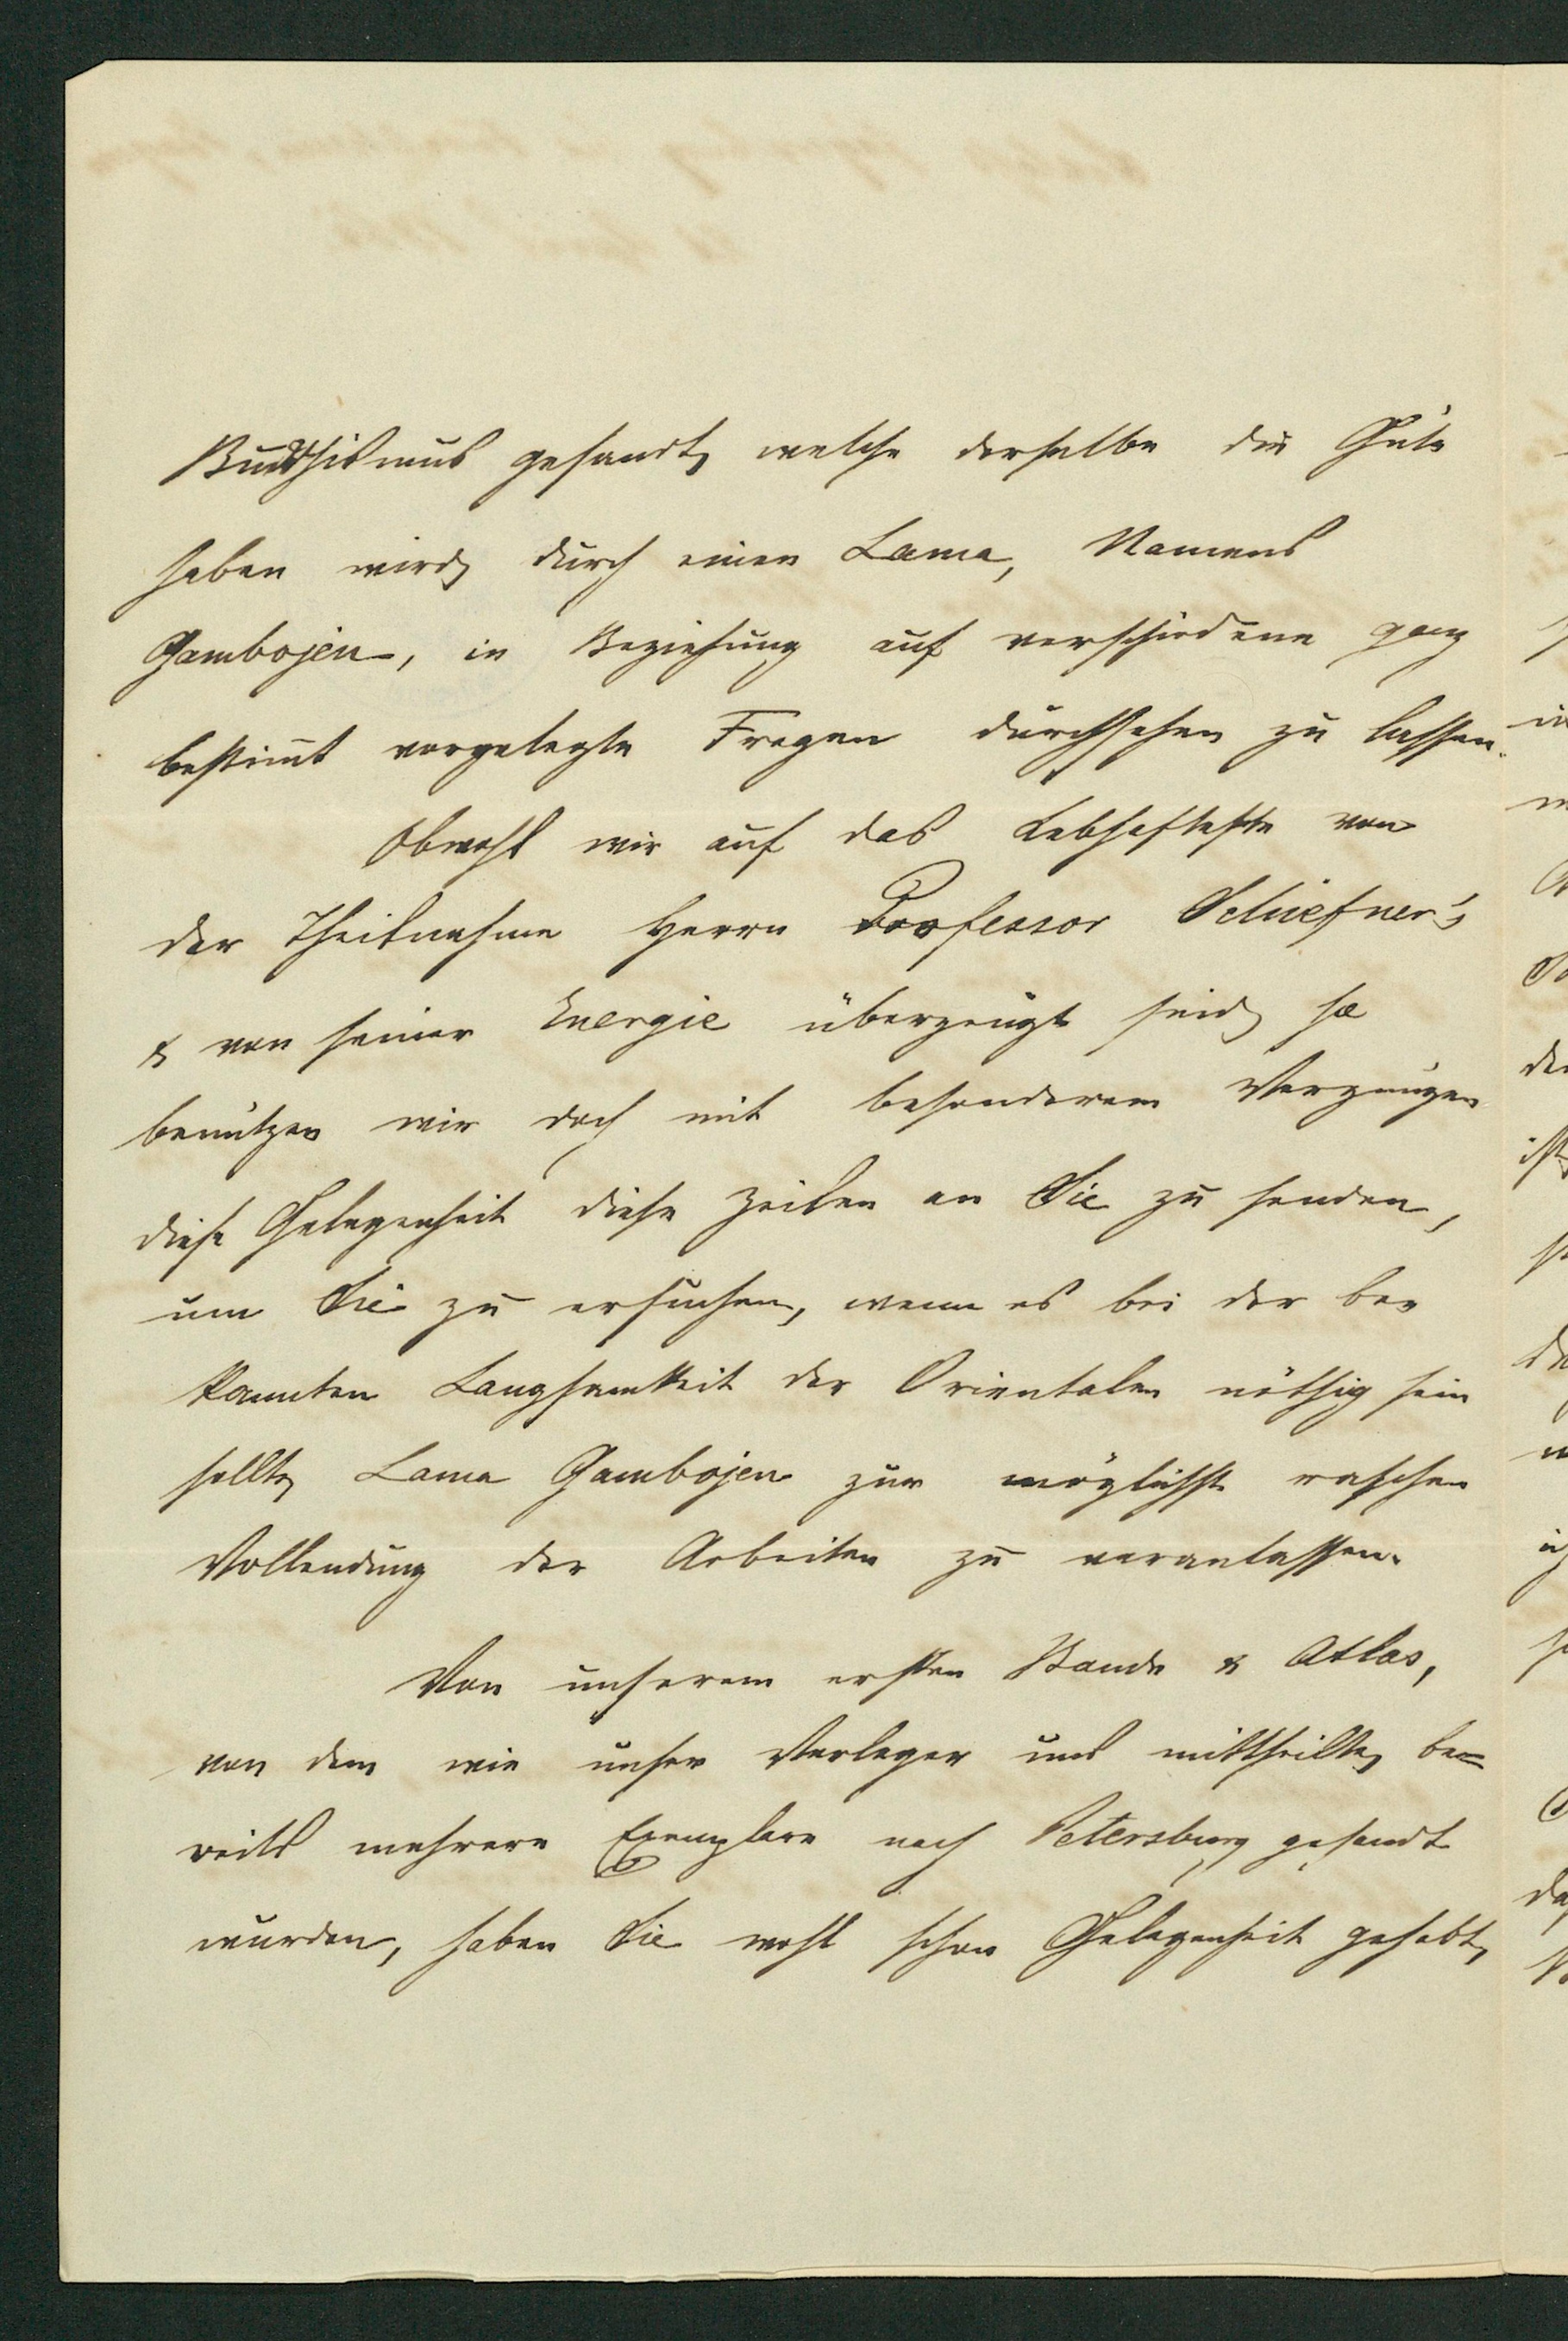 Buddhismus gesandt, welche derselbe die Güte
haben wird, durch einen Lama, Namens
Gombojen, in Beziehung auf verschiedene ganz
bestimmt vorgelegte Fragen durchsehen zu lassen.
Obwohl wir auf das Lebhafteste von
der Theilnahme Herrn Professor Schiefner's
& von seiner Energie überzeugt sind, so
benützen wir doch mit besonderem Vergnügen
diese Gelegenheit diese Zeilen an Sie zu senden,
um Sie zu ersuchen, wenn es bei der be-
kannten Langsamkeit der Orientalen nöthig sein
sollte, Lama Gombojen zur möglichst raschen
Vollendung der Arbeiten zu veranlassen.
Von unserem ersten Bande & Atlas,
von dem wie unser Verleger uns mittheilte, be=
reits mehrere Exemplare nach Petersburg gesandt
wurden, haben Sie wohl schon Gelegenheit gehabt,